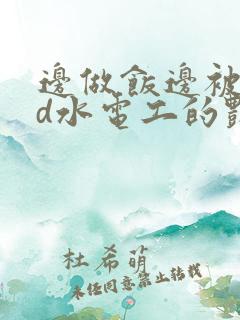 邊做飯邊被
d水電工的
杜希萌
未经同意禁止转载